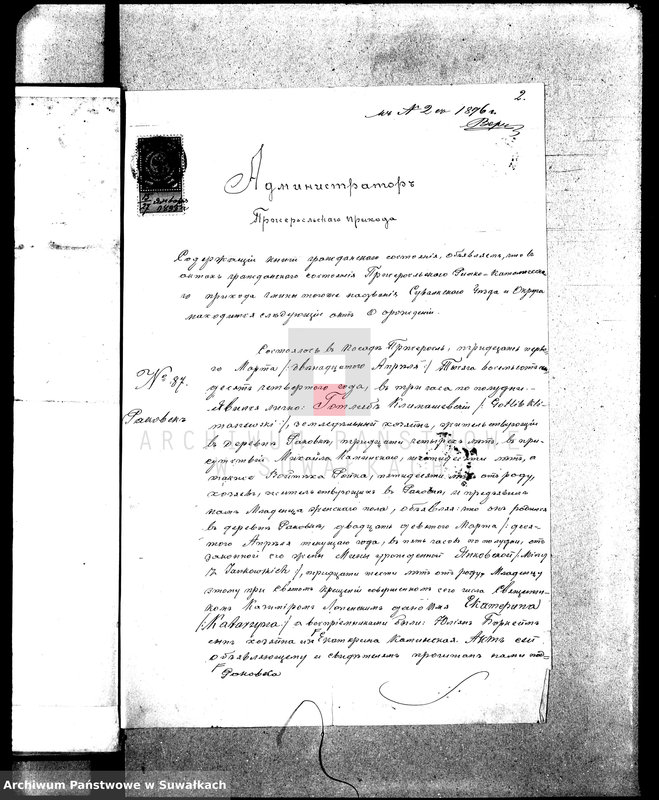 2.
къ № 2 en 1896 г.
2 Января
Администраторъ
Пржеросльскаго прихода
Содержащiй книги гражданскаго состоянiя, объявляетъ, что въ
актахъ гражданскаго состоянiя Пржеросльскаго Римско-Католическа
го прихода гмины тогоже названiя Сувалкскаго Уѣзда и Округа
находится слѣдующiй актъ о рожденiи.
№ 87.
Раковекъ
Состоялось въ посадѣ Пржеросль, тридцать перва
го Марта /:двѣнадцатого Апрѣля:/ Тысяча восемьсотъ
десятъ четвертого года, въ три часа по полудни.
Явился лично: Готлибъ Климашевскiй /:Gotlib Kli
maszewski:/, земледѣльный хозяинъ, жительствующiй
въ деревнѣ тридцати четырехъ лѣтъ, въ при
сутствiи Михаила Калинскаго, лѣтъ, а
также Войтѣха пятидесяти лѣтъ отъ роду,
хозяевъ, жительствующихъ въ и предъявилъ
намъ Младенца женскаго пола, объявляя: что онъ родился
въ деревнѣ двадцать девятого Марта /:деся-
того Апрѣля текущаго года, въ пять часовъ по полудни, отъ
законной его жены Мины урожденной Янковской /:Miny
z Jankowskich:/, тридцати шести лѣтъ отъ роду. Младенцу
этому при Святомъ крещенiи совершенномъ сего числа Священни-
комъ Казимiромъ дано имя Екатерина
/:Katarzyna:/ а воспрiемниками были: Юлiанъ
сынъ хозяина и Екатерина Калинская. Актъ сей
объявляющему и свидѣтелямъ прочитанъ нами под-
ARCHIWUM PAŃSTWOWE
W SUWAŁKACH
Archiwum Państwowe w Suwałkach